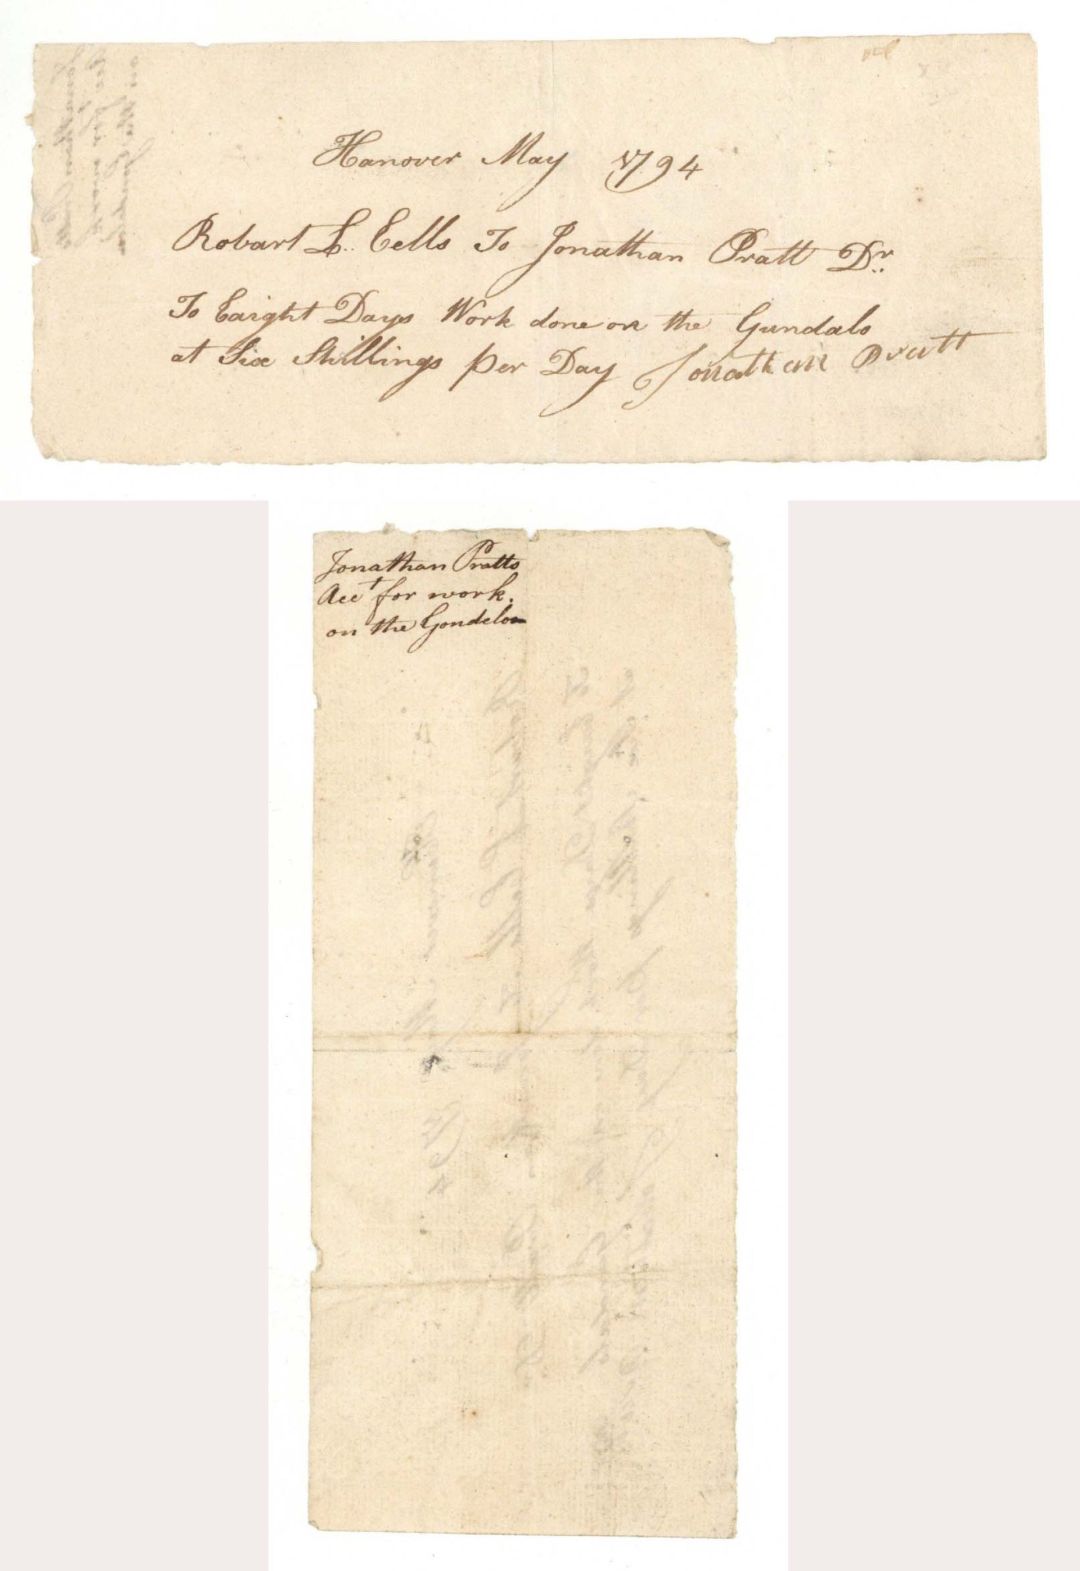 Hanover May 1794
Robart L. Eells To Jonathan Pratt Dr.
To Eaight Days Work done on the Gundalo
at Six Shillings per Day Jonathan Pratt
Jonathan Pratts
Acct for work
on the Gondelo